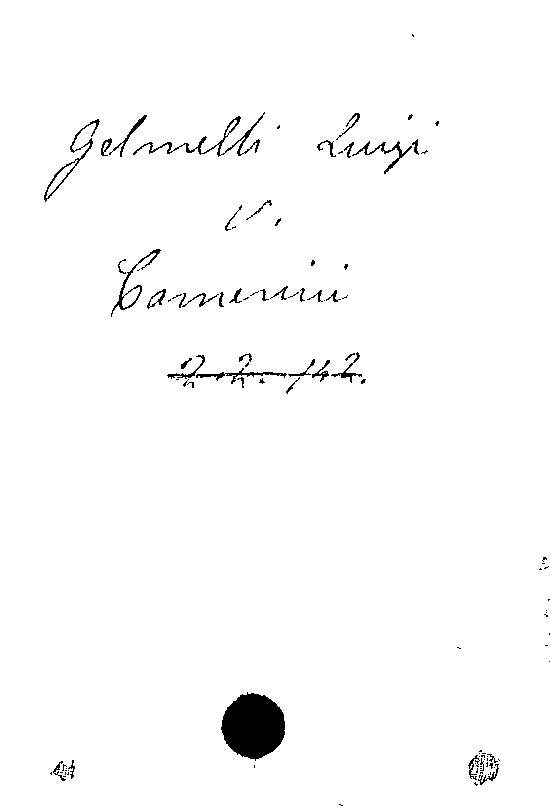 Gelmetti Luigi
v.
Camerini
2.2.142.